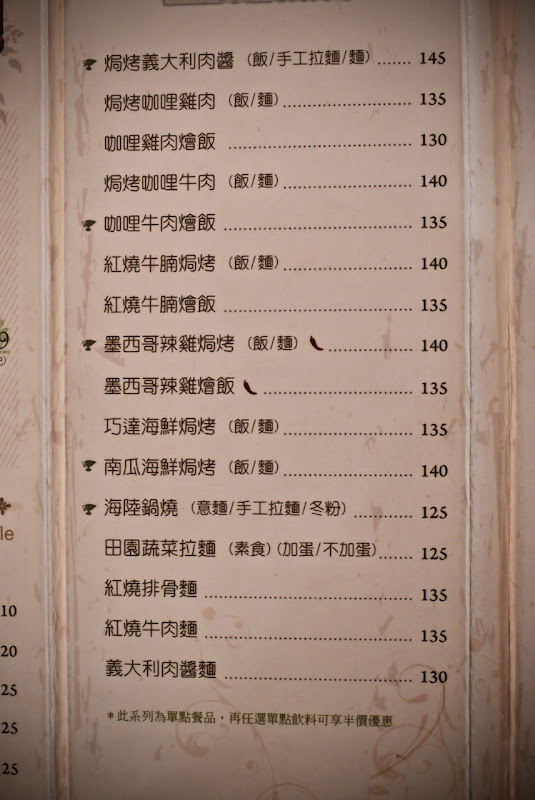 焗烤義大利肉醬 (飯/手工拉麵/麵) ....... 145
焗烤咖哩雞肉 (飯/麵) ....... 135
咖哩雞肉燴飯 ....... 130
焗烤咖哩牛肉 (飯/麵) ....... 140
咖哩牛肉燴飯 ....... 135
紅燒牛腩焗烤 (飯/麵) ....... 140
紅燒牛腩燴飯 ....... 135
墨西哥辣雞焗烤 (飯/麵) ....... 140
墨西哥辣雞燴飯 ....... 135
巧達海鮮焗烤 (飯/麵) ....... 135
南瓜海鮮焗烤 (飯/麵) ....... 140
海陸鍋燒 (意麵/手工拉麵/冬粉) ....... 125
田園蔬菜拉麵 (素食) (加蛋/不加蛋) ....... 125
紅燒排骨麵 ....... 135
紅燒牛肉麵 ....... 135
義大利肉醬麵 ....... 130
*此系列為單點餐品，再任選單點飲料可享半價優惠
9
le
10
20
25
25
25